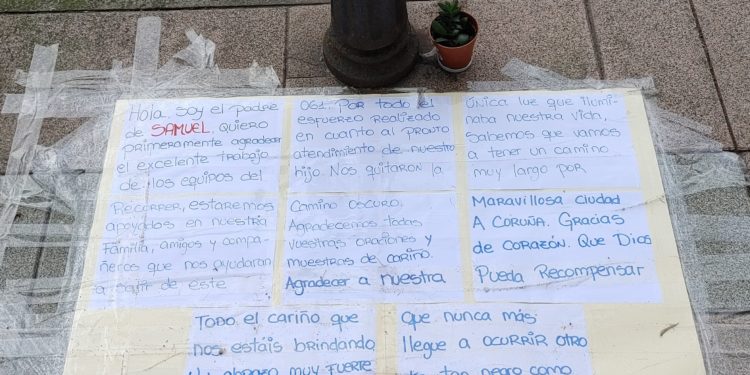 Hola, soy el padre
de SAMUEL. QUIERO
primeramente agradecer
el excelente trabajo
de los equipos del
061. Por todo el
esfuerzo realizado
en cuanto al pronto
atendimiento de nuestro
hijo. Nos quitaron la
única luz que ilumi-
naba nuestra vida,
Sabemos que vamos
a tener un camino
muy largo por
Recorrer, estaremos
apoyados en nuestra
Familia, amigos y compa-
ñeros que nos ayudaran
a salir de este
Camino oscuro.
Agradecemos todas
vuestras oraciones y
muestras de cariño.
Agradecer a nuestra
Maravillosa ciudad
A Coruña. Gracias
de corazón. Que Dios
Pueda Recompensar
TODO el cariño que
nos estáis brindando
Un abrazo muy FUERTE
Que nunca más
llegue a ocurrir otro
tan negro como